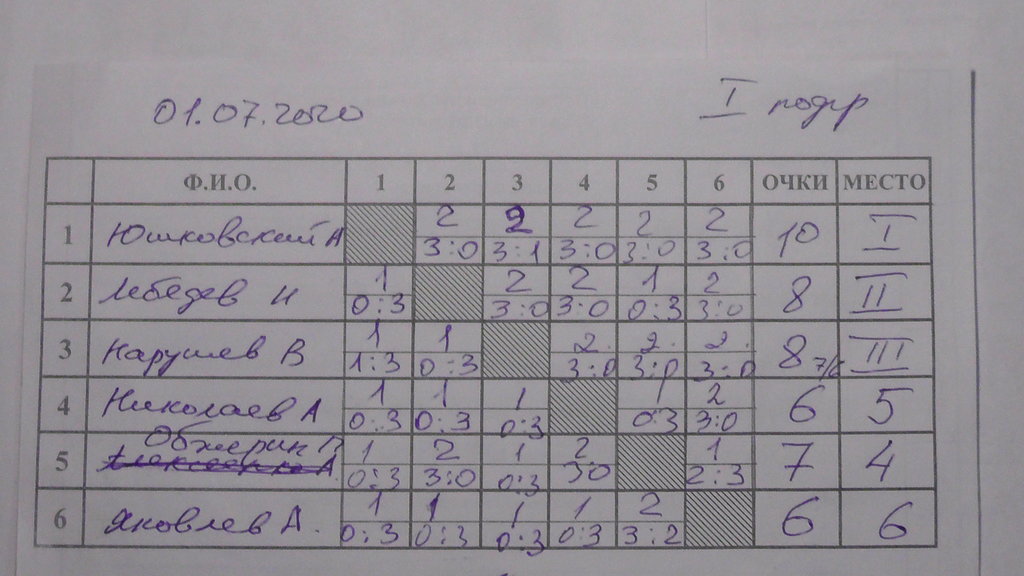 01.07.2020 I подгр
Ф.И.О. 1 2 3 4 5 6 ОЧКИ МЕСТО
1 Юшковский А 2 2 2 2 2 10 I
3:0 3:1 3:0 3:0 3:0
2 Лебедев И 1 2 2 1 2 8 II
0:3 3:0 3:0 0:3 3:0
3 Карушев В 1 1 2 2 2 8 III
1:3 0:3 3:0 3:0 3:0
4 Николаев А 1 1 1 1 2 6 5
0:3 0:3 0:3 0:3 3:0
Обжерин
5 1 2 1 2 1 7 4
0:3 3:0 0:3 30 2:3
6 Яковлев А. 1 1 1 1 2 6 6
0:3 0:3 0:3 0:3 3:2